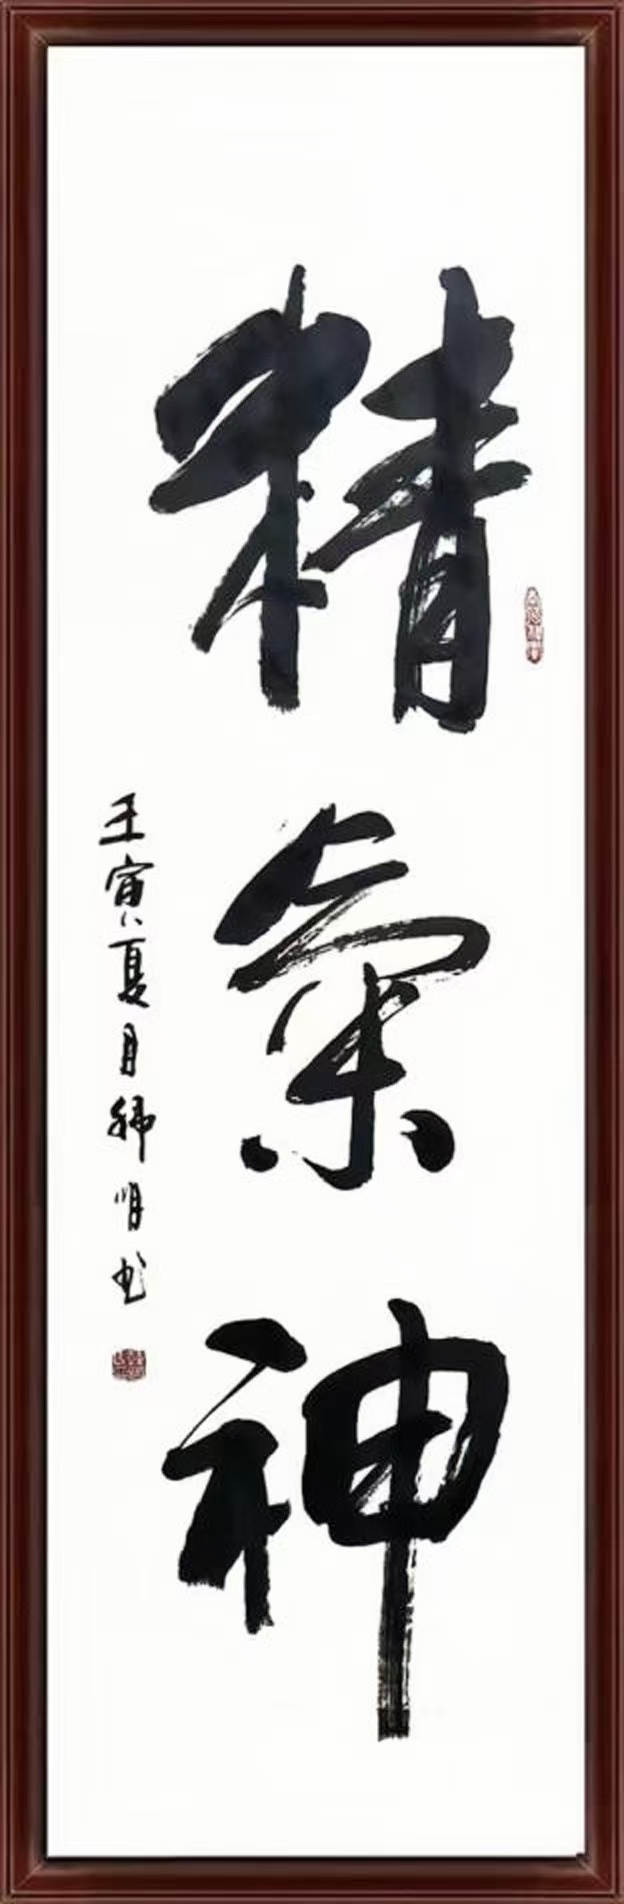 精氣神
壬寅夏月
明书